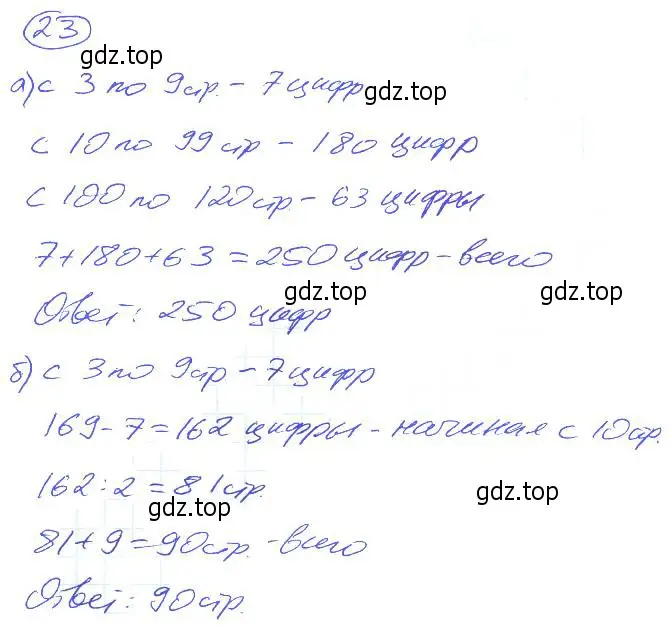 23
gdz.top
а) с 3 по 9 стр. - 7 цифр
gdz.top
с 10 по 99 стр - 180 цифр
с 100 по 120 стр. - 63 цифры
7+180+63=250 цифр - всего
gdz.top gdz.top
Ответ: 250 цифр
б) с 3 по 9 стр - 7 цифр
169-7=162 цифры - начиная с 10 стр.
162:2=81 стр.
gdz.top gdz.top
81+9=90 стр. - всего
Ответ: 90 стр.
gdz.top